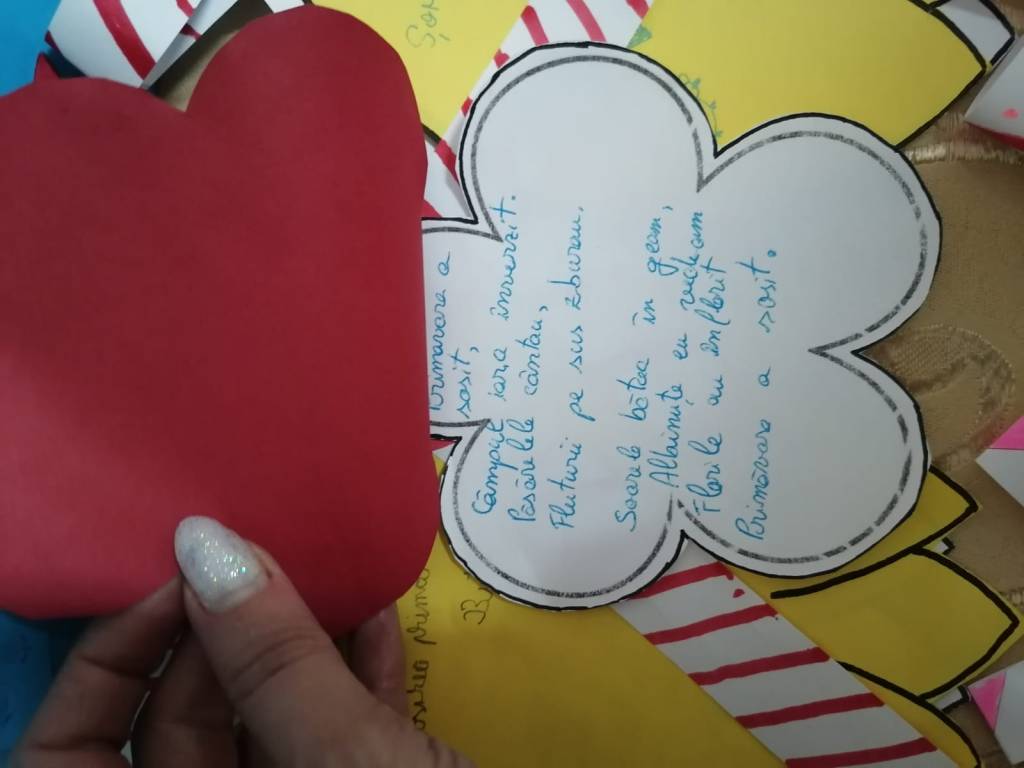 Primavara a
sosit,
Câmpul iara inverzit.
Păsărelele cântau,
Fluturii pe sus zburau.
Soarele bătea în geam,
Albinuțe eu vedeam
Florile au inflorit
Primăvara a sosit.